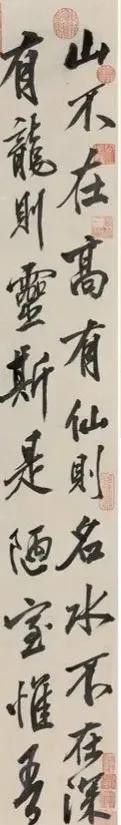 山不在高有仙則名水不在深
有龍則靈斯是陋室惟吾